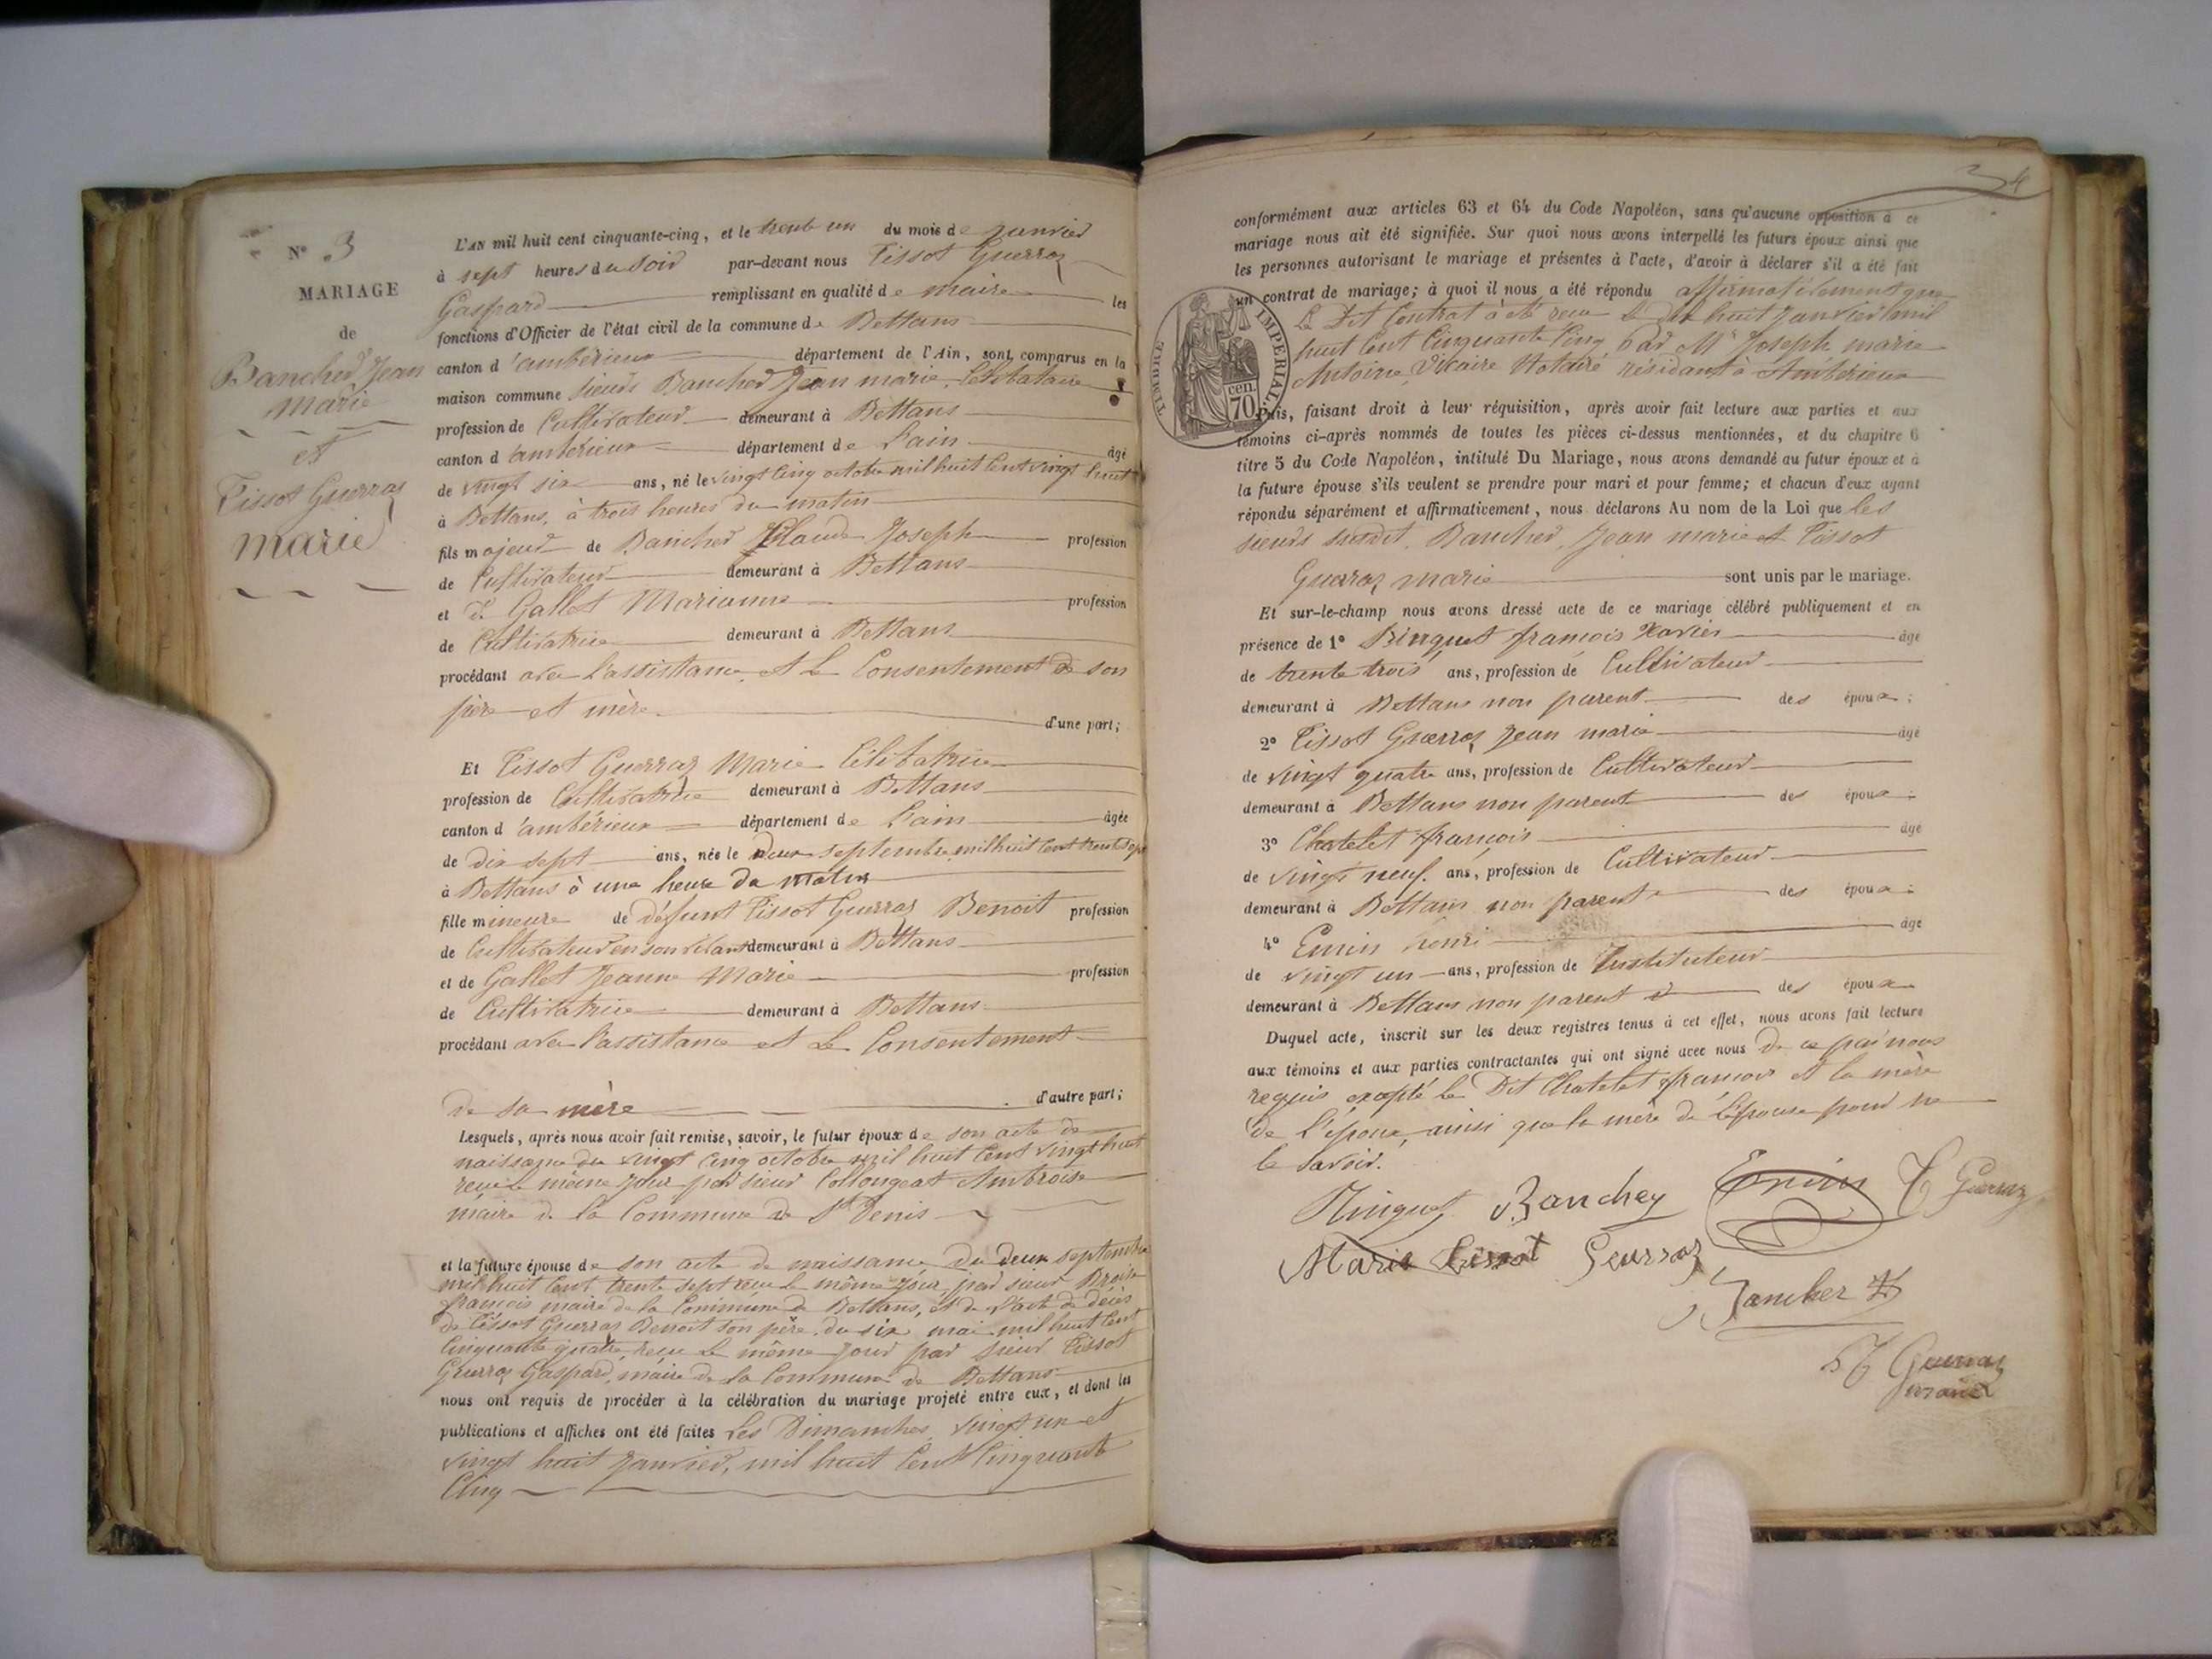 N° 3
MARIAGE
de
Bancher Jean
marie
et
Tissot Guerraz
marie
L'AN mil huit cent cinquante-cinq, et le trente un du mois de janvier
à sept heures du soir par-devant nous Tissot Guerraz
Gaspard remplissant en qualité de maire les
fonctions d'Officier de l'état civil de la commune de Bettans
canton d'ambérieux département de l'Ain, sont comparus en la
maison commune sieurs Bancher Jean marie, Célibataire
profession de Cultivateur demeurant à Bettans
canton d'ambérieux département de L'ain âgé
de vingt six ans, né le vingt Cinq octobre mil huit Cent vingt huit
à Bettans, à trois heures du matin
fils majeur de Bancher Claude Joseph profession
de Cultivateur demeurant à Bettans
et de Gallet Marianne profession
de Cultivatrice demeurant à Bettans
procédant avec l'assistance et le Consentement de son
père et mère. d'une part;
Et Tissot Guerraz Marie Célibatrice
profession de Cultivatrice demeurant à Bettans
canton d'ambérieux département de L'ain âgée
de dix sept ans, née le Deux septembre mil huit Cent trente sept
à Bettans à une heure du matin
fille mineure de défunt Tissot Guerraz Benoit profession
de Cultivateur en son vivant demeurant à Bettans
et de Gallet Jeanne Marie profession
de Cultivatrice demeurant à Bettans
procédant avec l'assistance et Le Consentement
de sa mère d'autre part;
Lesquels, après nous avoir fait remise, savoir, le futur époux de son acte de
naissance du vingt Cinq octobre mil huit Cent vingt huit
reçu le même jour par sieur Collongeat Ambroise
maire de la Commune de St Denis
et la future épouse de son acte de naissance, du Deux septembre
mil huit Cent trente sept reçu le même jour, par sieur
françois maire de la Commune de Bettans, et de l'acte de décès
de Tissot Guerraz Benoit son père, du six mai mil huit Cent
Cinquante quatre, reçu le même jour par sieur Tissot
Guerraz Gaspard, maire de la Commune de Bettans
nous ont requis de procéder à la célébration du mariage projeté entre eux, et dont les
publications et affiches ont été faites Les Dimanches vingt un et
vingt huit Janvier, mil huit Cent Cinquante
Cinq
conformément aux articles 63 et 64 du Code Napoléon, sans qu'aucune opposition à ce
mariage nous ait été signifiée. Sur quoi nous avons interpellé les futurs époux ainsi que
les personnes autorisant le mariage et présentes à l'acte, d'avoir à déclarer s'il a été fait
un contrat de mariage; à quoi il nous a été répondu affirmativement que
Le Dit Contrat à été reçu le dix huit Janvier mil
huit Cent Cinquante Cinq Par Mr Joseph marie
Antoine, Dicaire Notaire résidant à Ambérieux
TIMBRE IMPERIAL
70 cen.
Puis, faisant droit à leur réquisition, après avoir fait lecture aux parties et aux
témoins ci-après nommés de toutes les pièces ci-dessus mentionnées, et du chapitre 6
titre 5 du Code Napoléon, intitulé Du Mariage, nous avons demandé au futur époux et à
la future épouse s'ils veulent se prendre pour mari et pour femme; et chacun d'eux ayant
répondu séparément et affirmativement, nous déclarons Au nom de la Loi que les
sieurs susdit, Bancher, Jean marie et Tissot
Guerraz marie sont unis par le mariage.
Et sur-le-champ nous avons dressé acte de ce mariage célébré publiquement et en
présence de 1° Binguet françois Xavier âgé
de trente trois ans, profession de Cultivateur
demeurant à Bettans non parent des époux;
2° Tissot Guerraz Jean marie âgé
de vingt quatre ans, profession de Cultivateur
demeurant à Bettans non parent des époux;
3° Chatelet françois âgé
de vingt neuf ans, profession de Cultivateur
demeurant à Bettans non parent des époux;
4° henri âgé
de vingt un ans, profession de Instituteur
demeurant à Bettans non parent des époux
Duquel acte, inscrit sur les deux registres tenus à cet effet, nous avons fait lecture
aux témoins et aux parties contractantes qui ont signé avec nous De ce par nous
requis excepté le Dit Chatelet françois et la mère
de l'époux, ainsi que la mère de l'épouse pour ne
le savoir.
Banchey T Guerraz
Marie Tissot Geurraz
Bancher
Guerraz